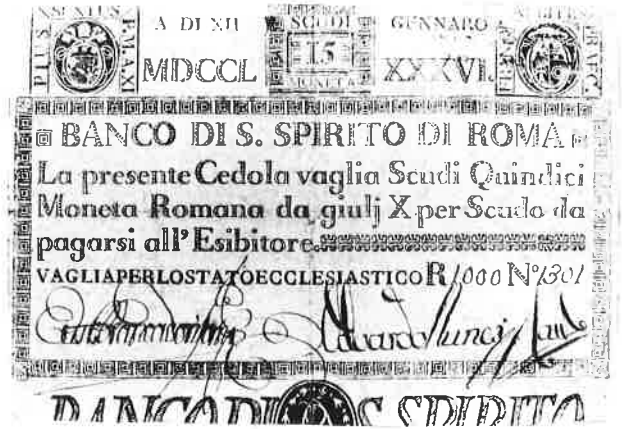 A DI XII SCUDI GENNARO
MDCCL 15 XXXVI.
MONETA
PIUS SEXTUS P. MAX
BANCO DI S. SPIRITO DI ROMA
La presente Cedola vaglia Scudi Quindici
Moneta Romana da giulj X per Scudo da
pagarsi all' Esibitore.
VAGLIA PER LO STATO ECCLESIASTICO R 1000 Nº 1301
BANCO DI S. SPIRITO